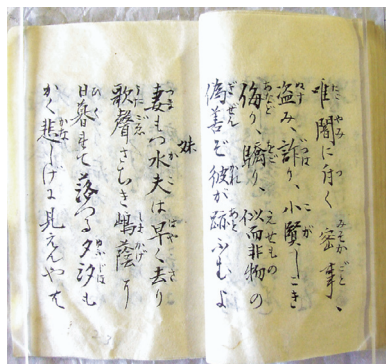 唯闇に行く密事、
盗み、詐り、小賢しき
侮り、驕り、似而非物の
偽善ぞ彼が跡ふむよ
妹
妻まつ水夫は早く去り
歌聲さむき嶋蔭に
日暮れて落つる夕汐も
かく悲しげに見えんやは